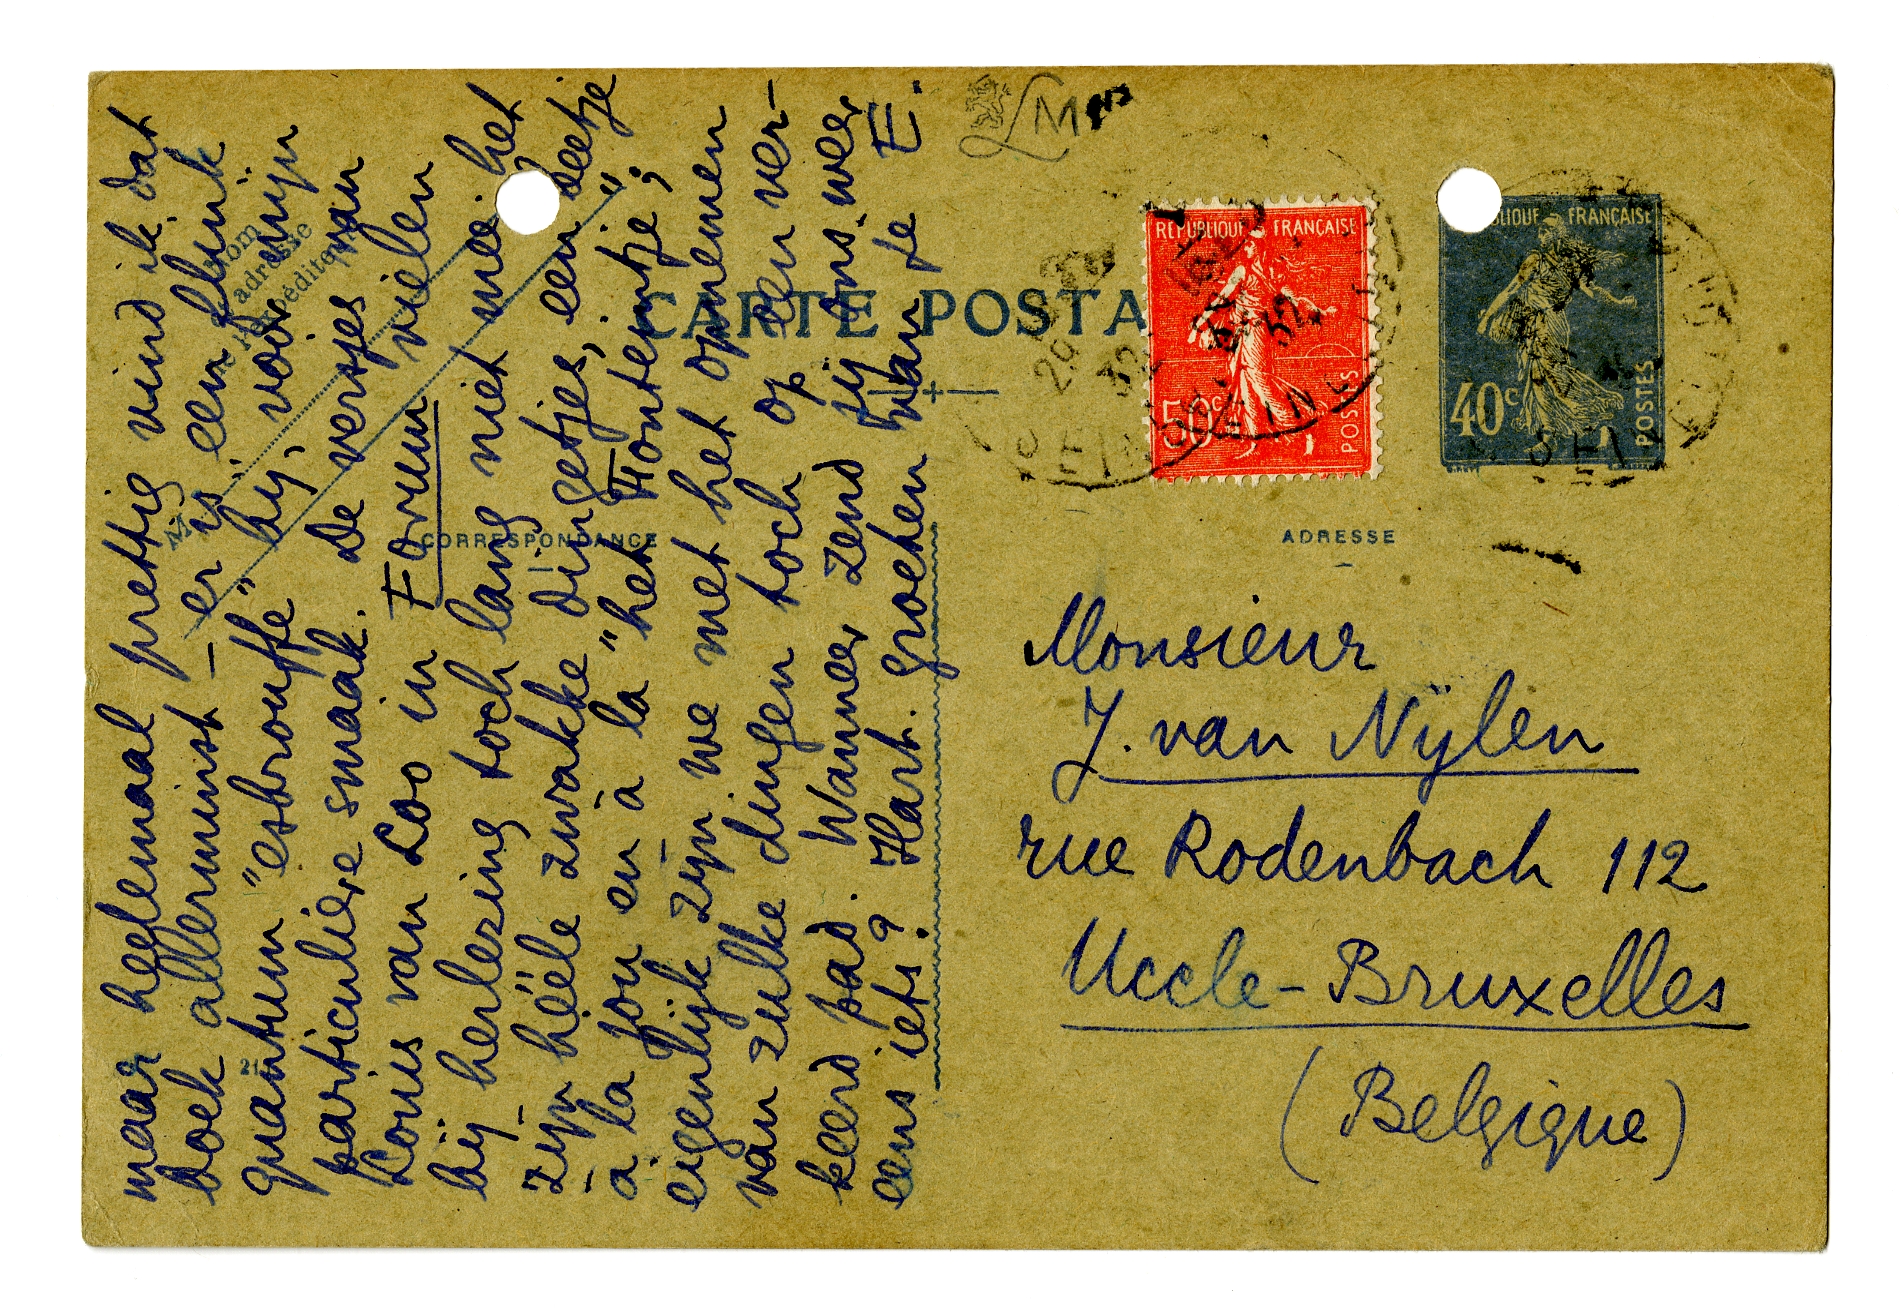 maar heelemaal prettig vind ik dat
boek allerminst – er is een flink
quantum "esbrouffe" bij, voor mijn
particuliere smaak. De versjes van
Louis van Loo in Forum vielen
bij herlezing toch lang niet mee: het
zijn hééle zwakke dingetjes, een beetje
à la jou en à la "het Fonteintje";
eigenlijk zijn we met het opnemen
van zulke dingen toch op een ver-
keerd pad. Wanneer zend jij ons weer
eens iets? Hart. groeten van je E.
Nom
et adresse
de l'Expéditeur
M
CARTE POSTA
CORRESPONDANCE
ADRESSE
21
LM
REPUBLIQUE FRANÇAISE
50c
POSTES
BLIQUE FRANÇAISE
40c
POSTES
32
SEINE
Monsieur
J. van Nijlen
rue Rodenbach 112
Uccle-Bruxelles
(Belgique)